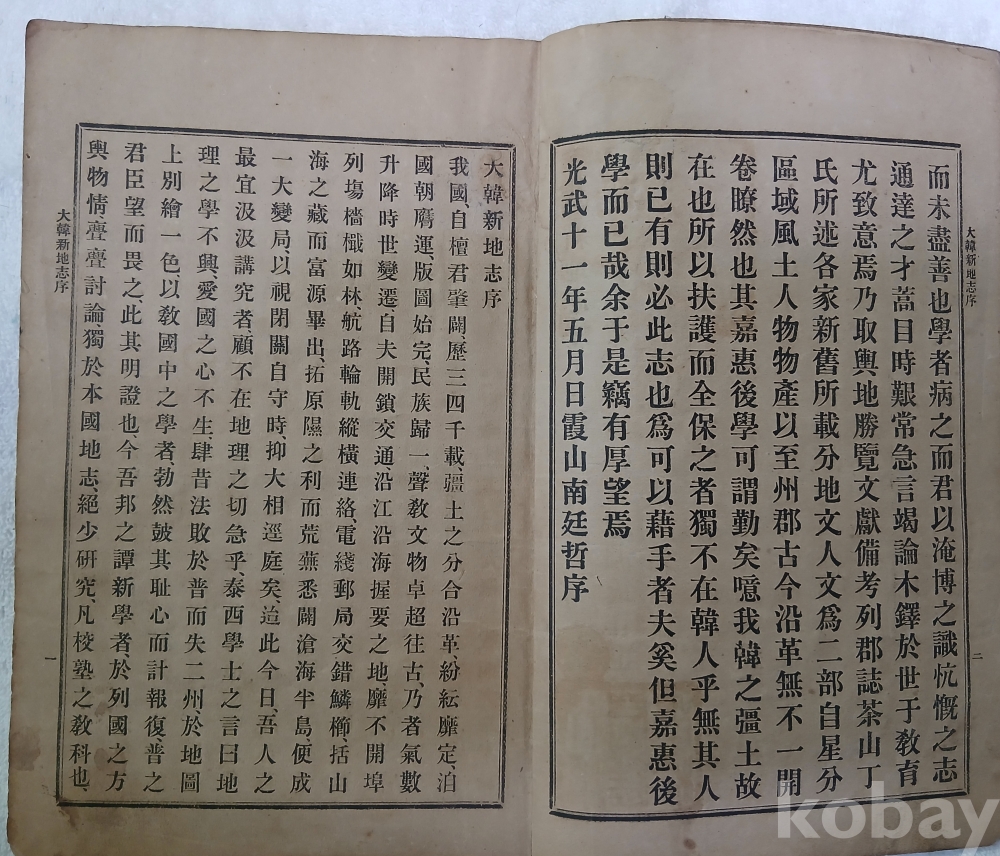 大韓新地志序
而未盡善也學者病之而君以淹博之識忼慨之志
通達之才蒿目時艱常急言竭論木鐸於世于敎育
尤致意焉乃取輿地勝覽文獻備考列郡誌茶山丁
氏所述各家新舊所載分地文人文爲二部自星分
區域風土人物物產以至州郡古今沿革無不一開
卷瞭然也其嘉惠後學可謂勤矣噫我韓之彊土故
在也所以扶護而全保之者獨不在韓人乎無其人
則已有則必此志也爲可以藉手者夫奚但嘉惠後
學而已哉余于是竊有厚望焉
光武十一年五月日霞山南廷哲序
二
大韓新地志序
我國、自檀君肇闢、歷三四千載、彊土之分合沿革、紛紜靡定、洎
國朝膺運、版圖始完、民族歸一、聲敎文物卓超往古、乃者氣數
升降時世變遷、自夫開鎖交通、沿江沿海握要之地、靡不開埠
列塲檣檝如林航路輪軌縱橫連絡、電綫郵局交錯鱗櫛、括山
海之藏而富源畢出、拓原隰之利而荒蕪悉闢滄海半島、便成
一大變局、以視閉關自守時、抑大相逕庭矣、迨此今日、吾人之
最宜汲汲講究者顧不在地理之切急乎泰西學士之言曰地
理之學不興、愛國之心不生、肆昔法敗於普而失二州、於地圖
上別繪一色、以敎國中之學者、勃然皷其耻心而計報復、普之
君臣望而畏之、此其明證也今吾邦之譚新學者、於列國之方
輿物情亹亹討論獨於本國地志、絕少硏究、凡校塾之敎科也、
大韓新地志序
一
kobay